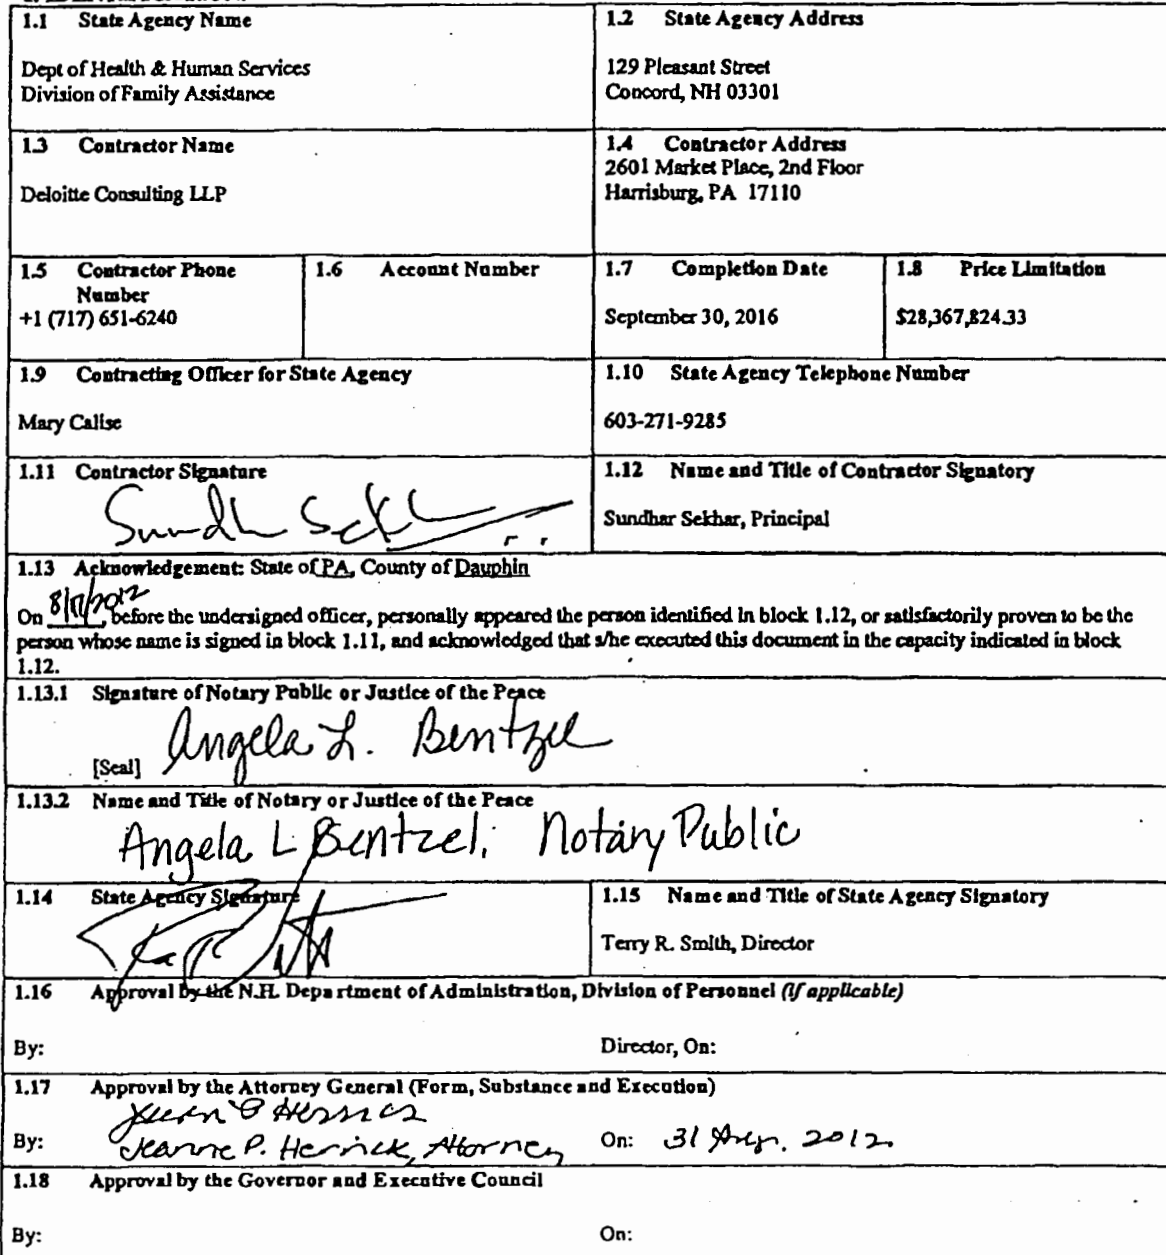 1.1 State Agency Name
Dept of Health & Human Services
Division of Family Assistance
1.2 State Agency Address
129 Pleasant Street
Concord, NH 03301
1.3 Contractor Name
Deloitte Consulting LLP
1.4 Contractor Address
2601 Market Place, 2nd Floor
Harrisburg, PA 17110
1.5 Contractor Phone
Number
+1 (717) 651-6240
1.6 Account Number
1.7 Completion Date
September 30, 2016
1.8 Price Limitation
$28,367,824.33
1.9 Contracting Officer for State Agency
Mary Calise
1.10 State Agency Telephone Number
603-271-9285
1.11 Contractor Signature
1.12 Name and Title of Contractor Signatory
Sundhar Sekhar, Principal
1.13 Acknowledgement: State of PA, County of Dauphin
On 8/17/2012, before the undersigned officer, personally appeared the person identified in block 1.12, or satisfactorily proven to be the
person whose name is signed in block 1.11, and acknowledged that s/he executed this document in the capacity indicated in block
1.12.
1.13.1 Signature of Notary Public or Justice of the Peace
Angela L. Bentzel
[Seal]
1.13.2 Name and Title of Notary or Justice of the Peace
Angela L Bentzel, Notary Public
1.14 State Agency Signature
1.15 Name and Title of State Agency Signatory
Terry R. Smith, Director
1.16 Approval by the N.H. Department of Administration, Division of Personnel (if applicable)
By: Director, On:
1.17 Approval by the Attorney General (Form, Substance and Execution)
By: Jeanne P. Herrick, Attorney On: 31 Aug. 2012
1.18 Approval by the Governor and Executive Council
By: On: